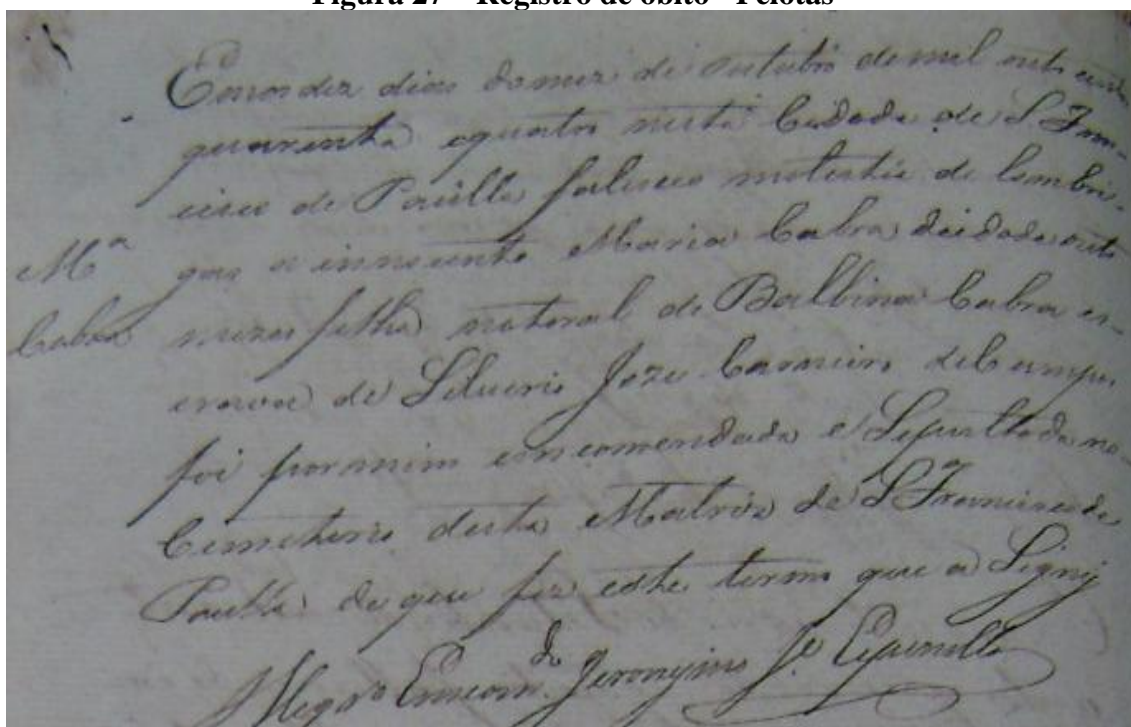 Figura 27 – Registro de óbito - Pelotas
dez dias do mez de outubro de mil oito centos
quarenta e quatro nesta Cidade de S. Fran-
cisco de Paulla faleceo molestia de lombri-
Mª gas a innocente Maria Cabra de idade oito
Cabra mezes filha natural de Balbina Cabra es-
crava de Joze Carneiro de Campos
foi por mim emcomendada e Sepultada no
Cemiterio desta Matriz de S. Francisco de
Paulla de que fiz este termo que a Signei
Encomdo Jeronymo Je